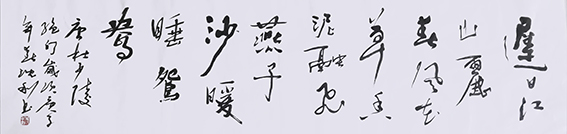 遲日江
山麗
春風花
草香
泥融飛
燕子
沙暖
睡鴛
鴦
唐杜少陵
絕句歲次庚子
年春